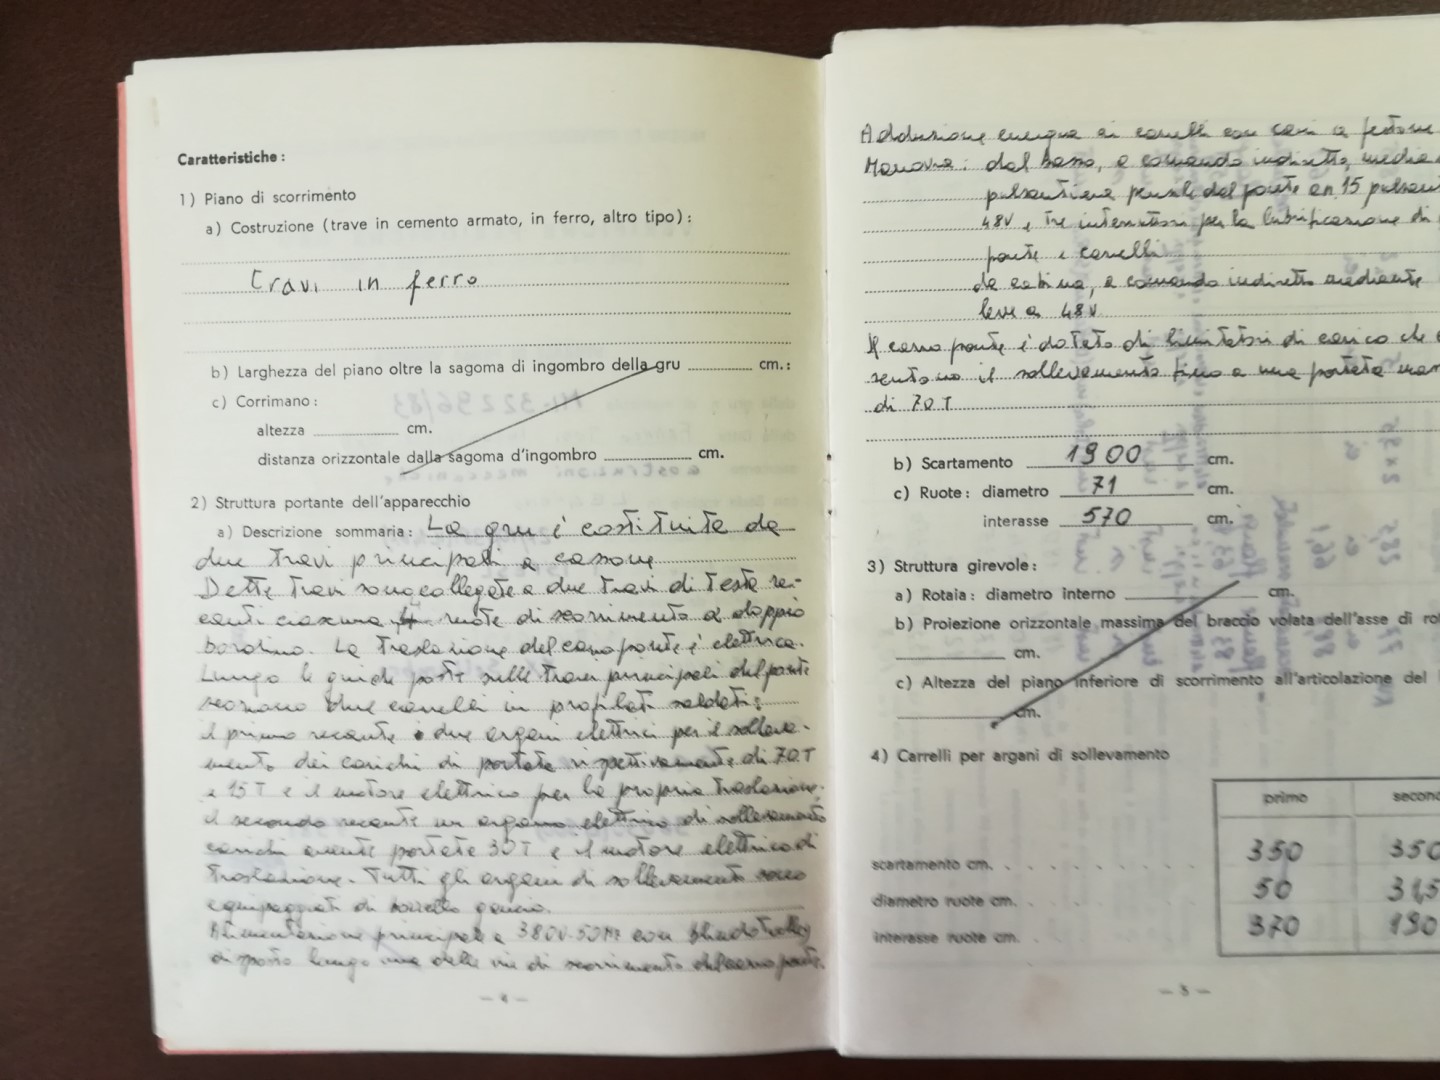 Caratteristiche:
1) Piano di scorrimento
a) Costruzione (trave in cemento armato, in ferro, altro tipo):
Travi in ferro
b) Larghezza del piano oltre la sagoma di ingombro della gru cm.:
c) Corrimano:
altezza cm.
distanza orizzontale dalla sagoma d'ingombro cm.
2) Struttura portante dell'apparecchio
a) Descrizione sommaria: La gru è costituita da
due travi principali a cassone
Dette travi sono collegate a due travi di testa re-
canti ciascuna 4 ruote di scorrimento a doppio
bordino. La traslazione del carroponte è elettrica.
Lungo le guide poste sulle travi principali del ponte
scorrono due carrelli in profilati saldati:
il primo recante due argani elettrici per il solleva-
mento dei carichi di portata rispettivamente di 70T
e 15T e il motore elettrico per la propria traslazione.
il secondo recante un argano elettrico di sollevamento
carichi avente portata 30T e il motore elettrico di
traslazione. Tutti gli argani di sollevamento sono
equipaggiati di bozzello gancio.
Alimentazione principale a 380V-50Hz con blindotrolley
disposto lungo una delle vie di scorrimento del carroponte.
— 4 —
Adduzione energia ai carrelli con cavi a festone
Manovra: dal basso, a comando indiretto, media
pulsantiera pensile dal ponte a n. 15 pulsant
48V, tre interruttori per la lubrificazione di
ponte e carrelli
da cabina, a comando indiretto mediante
leve a 48V
Il carro ponte è dotato di limitatori di carico che
sentono il sollevamento fino a una portata
di 70T
b) Scartamento 1900 cm.
c) Ruote: diametro 71 cm.
interasse 570 cm.
3) Struttura girevole:
a) Rotaia: diametro interno cm.
b) Proiezione orizzontale massima del braccio volata dell'asse di ro
cm.
c) Altezza del piano inferiore di scorrimento all'articolazione del
cm.
4) Carrelli per argani di sollevamento
primo second
scartamento cm. 350 350
diametro ruote cm. 50 31,5
interasse ruote cm. 370 190
— 5 —